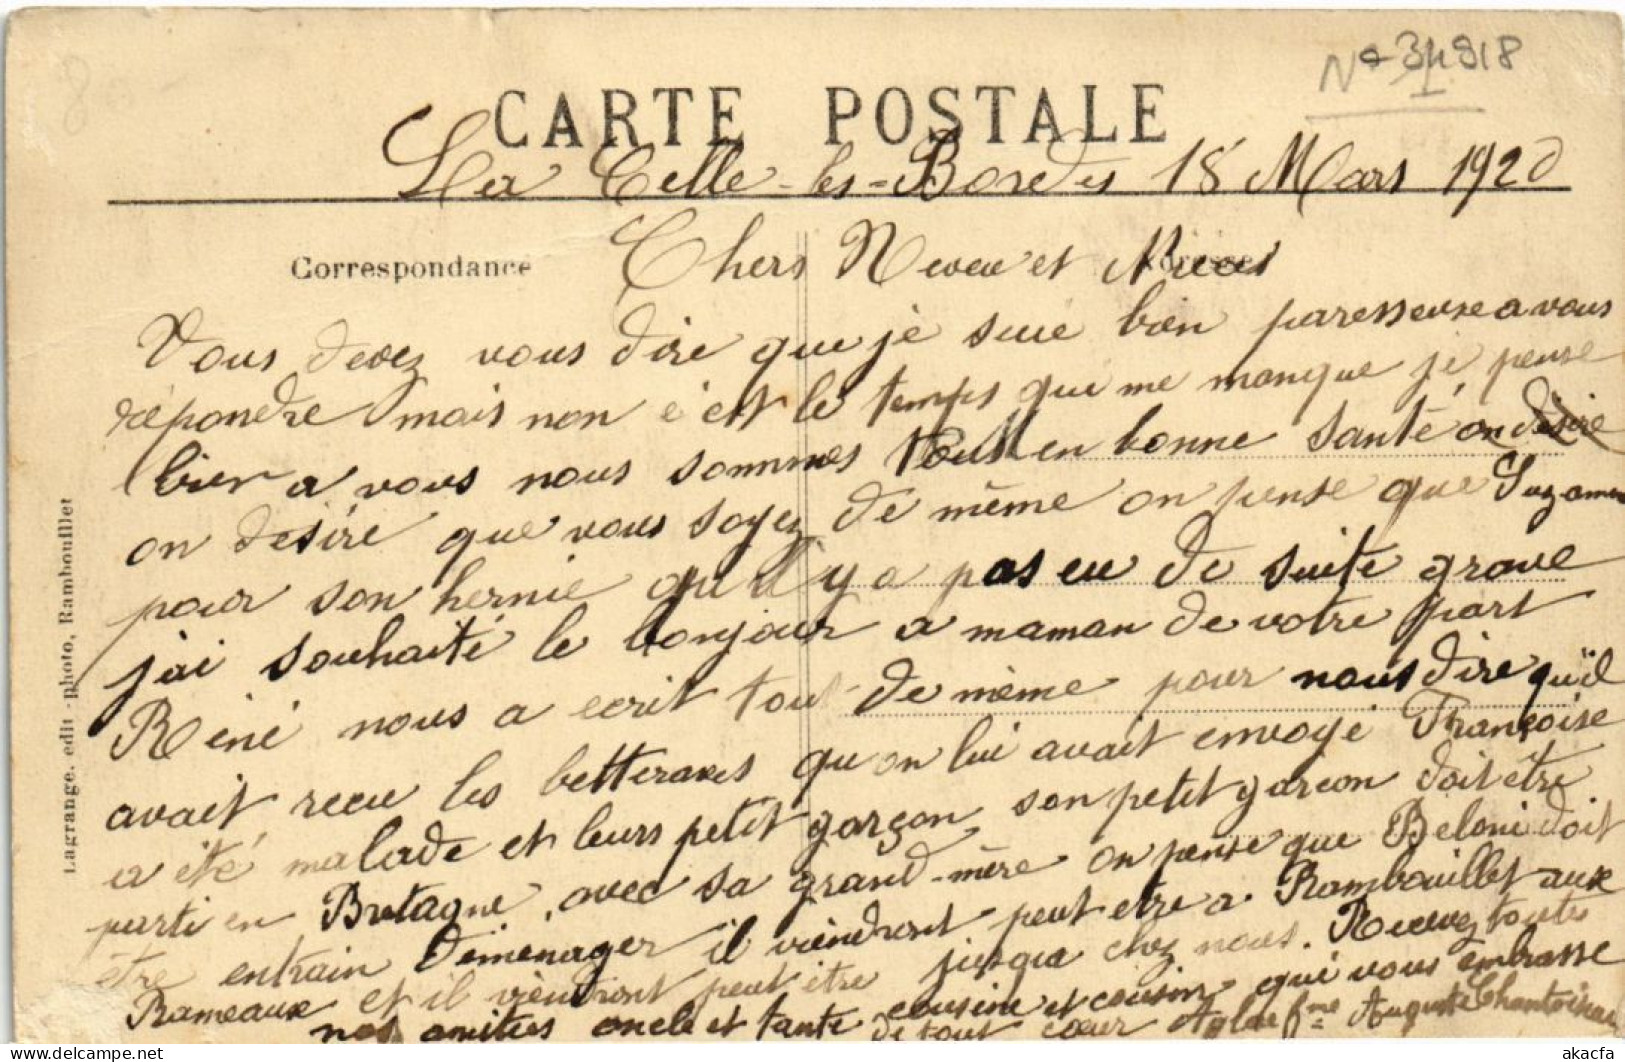 Nº 34918
CARTE POSTALE
La Celle-les-Bordes 18 Mars 1920
Correspondance
Chers Neveu et Nièces
Vous devez vous dire que je suie bien paresseuse a vous
répondre mais non c'est le temps qui me manque je pense
bien a vous nous sommes tous en bonne santé on désire
on desire que vous soyez de même on pense que Suzanne
pour son hernie qu'il y a pas eu de suite grave
j'ai souhaité le bonjour a maman de votre part
Réné nous a ecrit tout de même pour nous dire qu'il
avait recu les betteraves qu on lui avait envoyé Françoise
a été malade et leurs petit garçon son petit garcon doit être
parti en Bretagne avec sa grand-mère on pense que Beloni doit
être entrain demenager il viendront peut etre a Rambouillet aux
Rameaux et il viendront peut être jusqua chez nous. Recevez toutes
nos amities oncle et tante cousine et cousin qui vous embrasse
de tout cœur Aglae fme Auguste
Lagrange, edit-photo, Rambouillet
akacfa